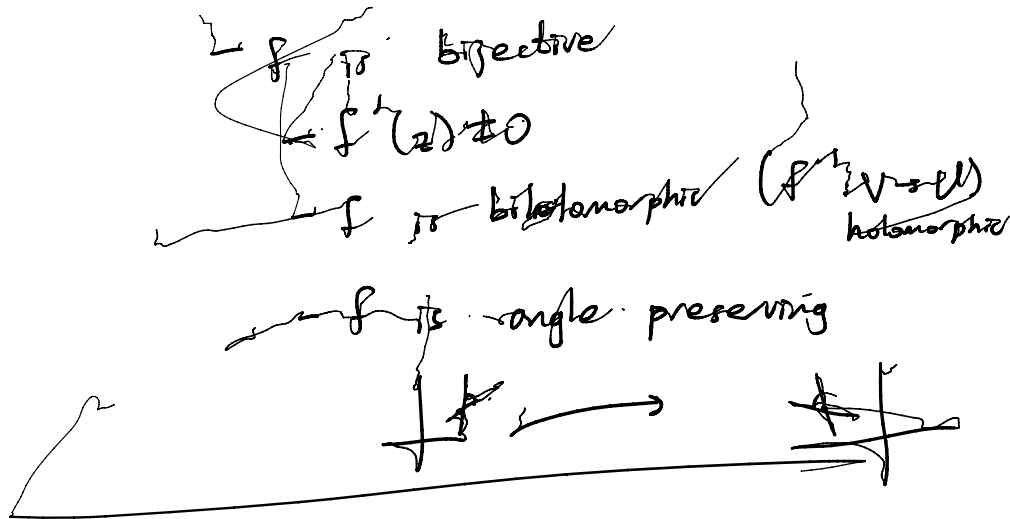 f is bijective
f'(z) ≠ 0
f is biholomorphic (f⁻¹: V→U)
holomorphic
f is angle preserving